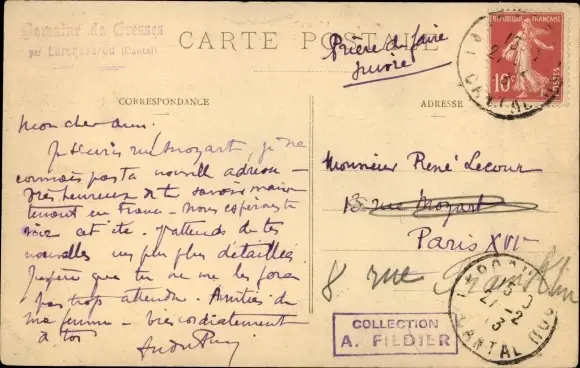 Domaine de Gresses
par Laroquebrou (Cantal)
CARTE POSTALE
Prière de faire
suivre
REPUBLIQUE FRANÇAISE
10c
POSTES
CORRESPONDANCE
ADRESSE
Mon cher ami.
Je t'écris rue Mozart, je ne
connais pas ta nouvelle adresse –
très heureux de te savoir mainte
tenant en France – nous espérons te
voir cet été. J'attends de tes
nouvelles un peu plus détaillées
J'espère que tu ne me les feras
pas trop attendre. Amitiés de
ma femme – bien cordialement
à toi
Monsieur René Lecour
13 rue Mozart
Paris XVI
8 rue Franklin
21-2
13
CANTAL
COLLECTION
A. FILDIER